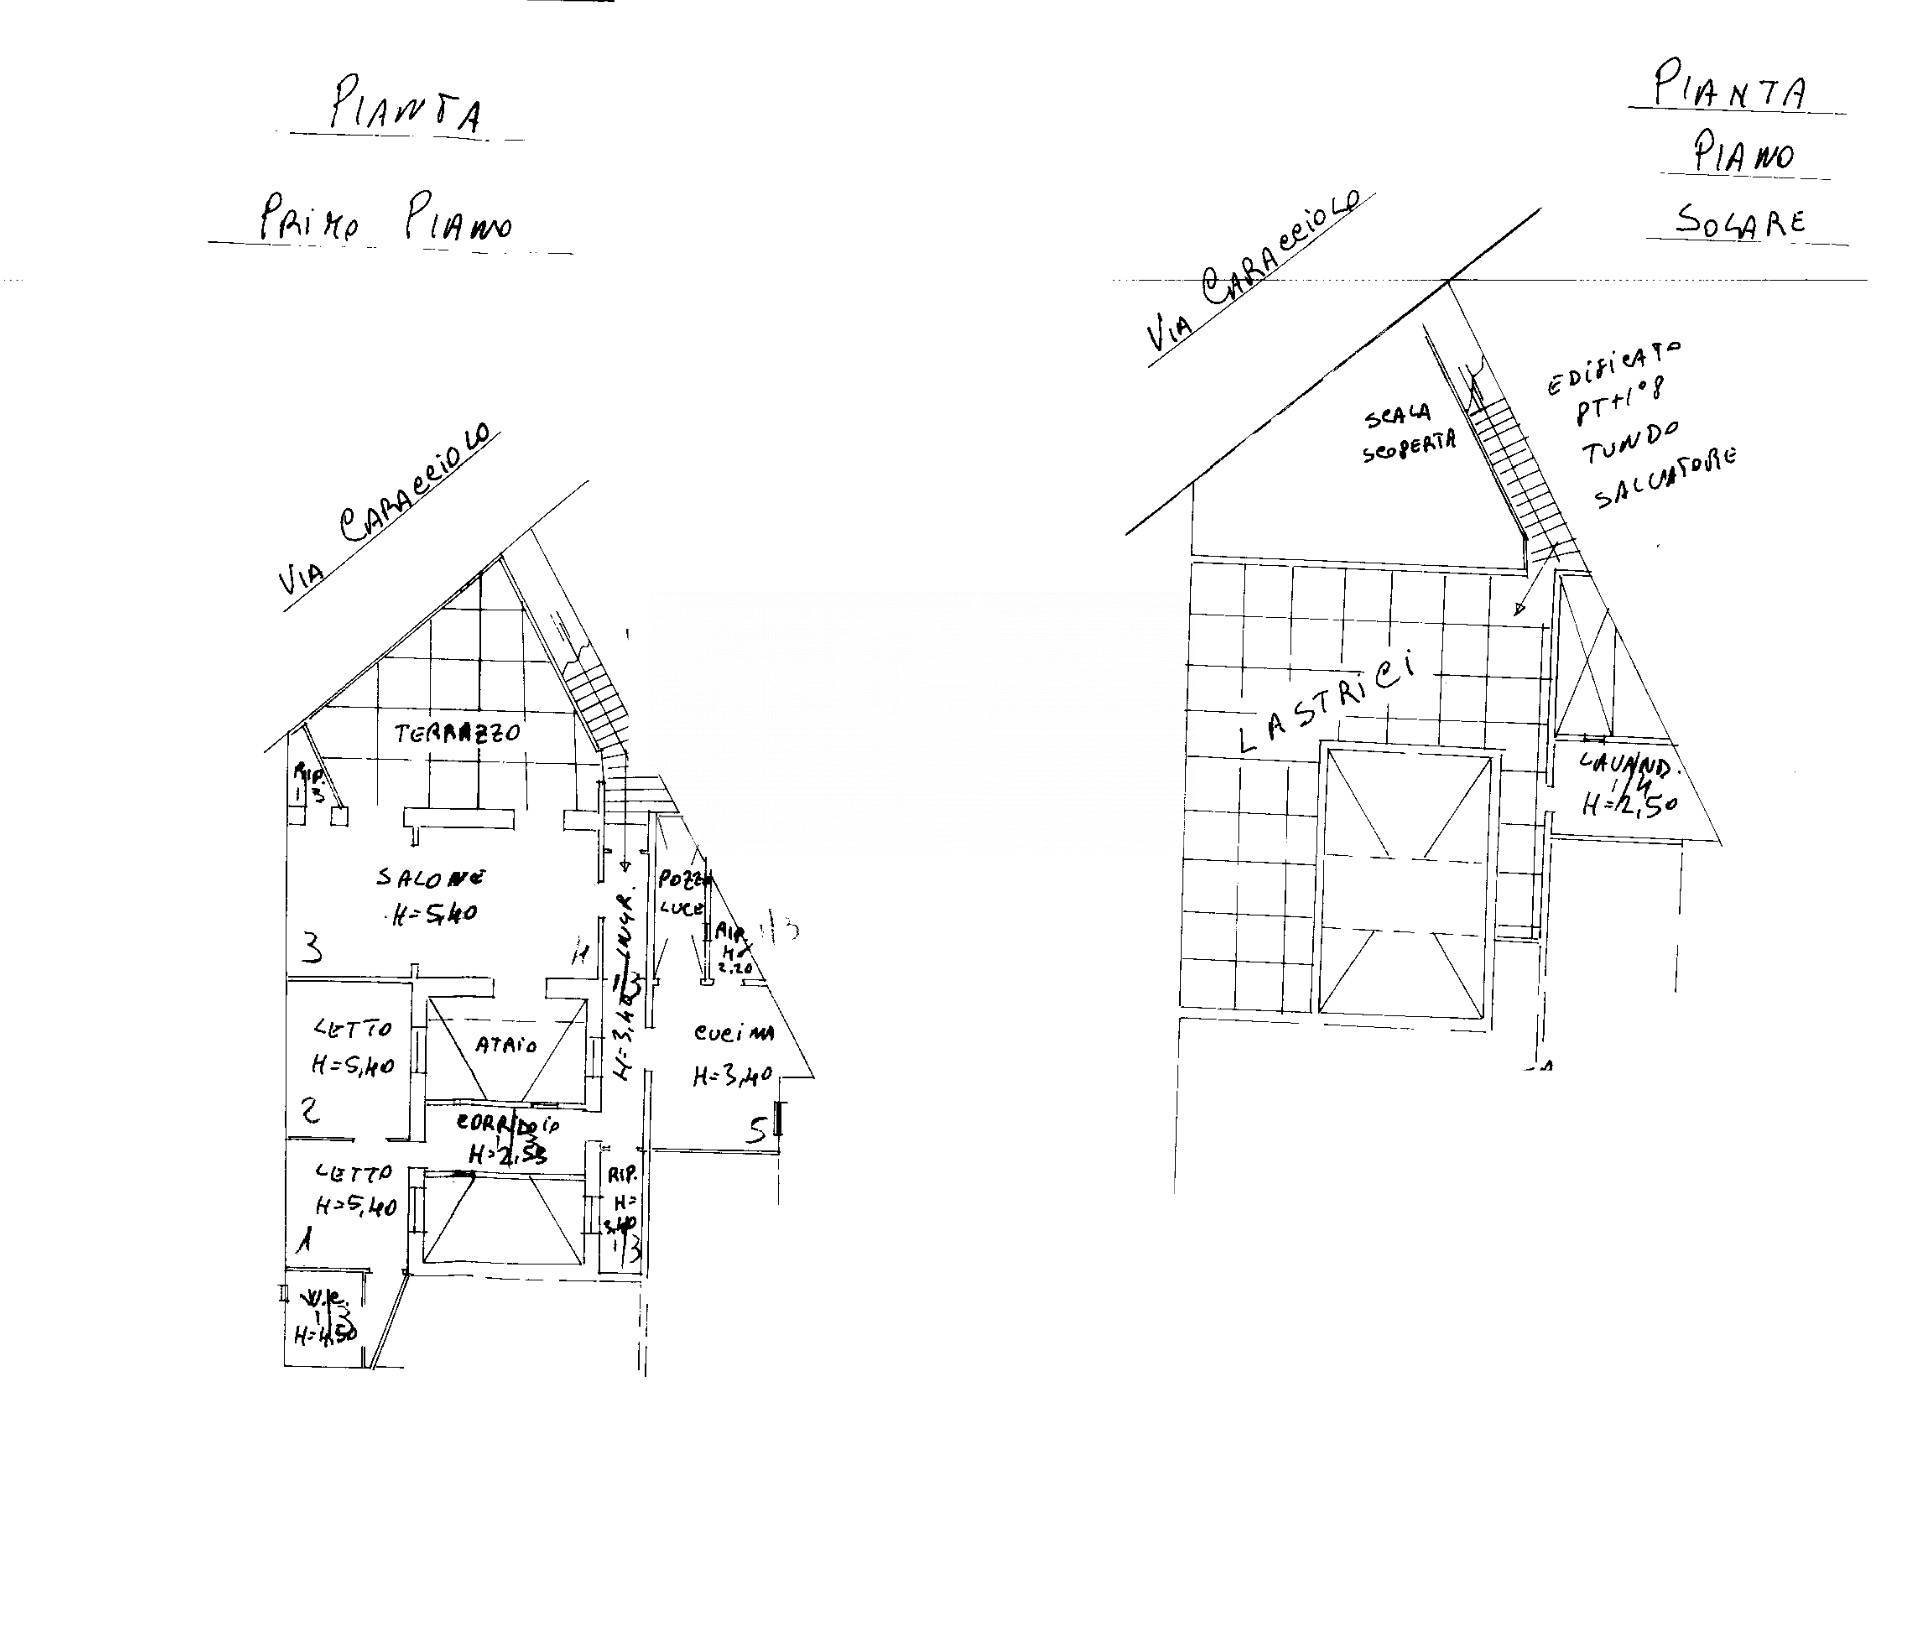 PIANTA
PRIMO PIANO
VIA CARACCIOLO
TERRAZZO
RIP.
SALONE
H=5,40
3
4
INGR.
H=3,40
POZZO
LUCE
H
2.20
1/3
LETTO
H=5,40
2
ATRIO
CUCINA
H=3,40
5
CORRIDOIO
H=2,55
LETTO
H=5,40
1
RIP.
H=
3,40
1/3
W.C.
1/3
H=4,50
PIANTA
PIANO
SOLARE
VIA CARACCIOLO
SCALA
SCOPERTA
EDIFICATO
TUNDO
SALVATORE
LASTRICI
LAVAND.
1/4
H=2,50